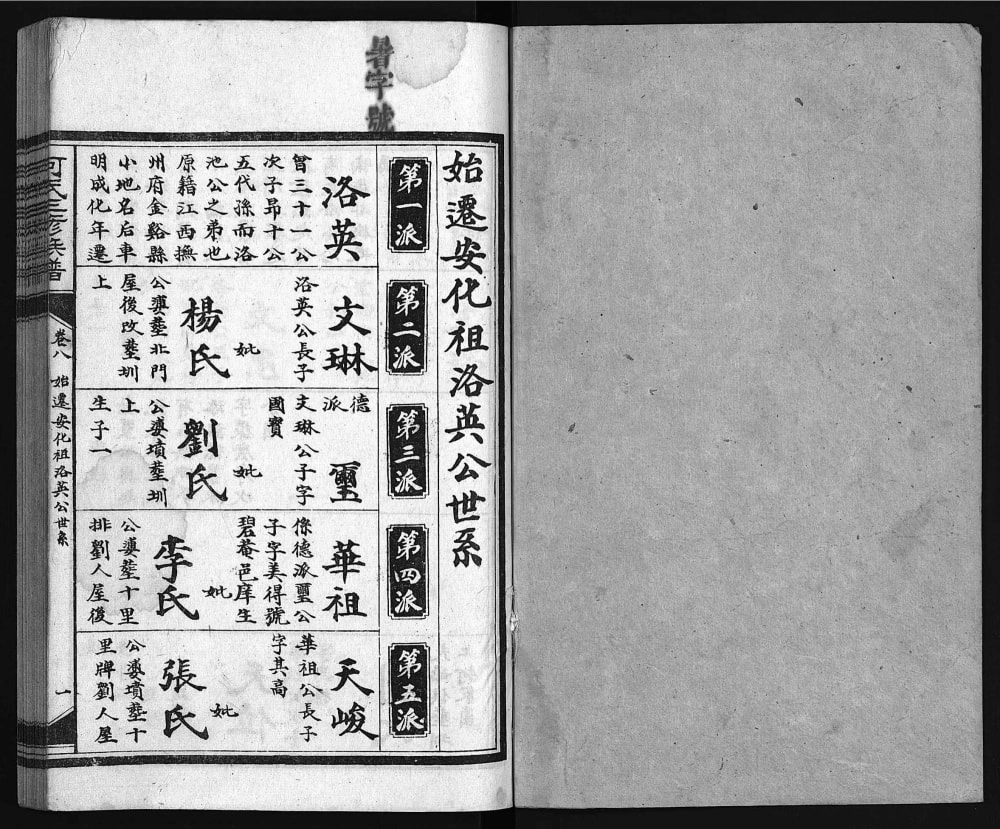 暑字號
始遷安化祖洛英公世系
第一派
洛英
曾三十一公
次子昻十公
五代孫而洛
池公之弟也
原籍江西撫
州府金谿縣
小地名后車
明成化年遷
第二派
文琳
洛英公長子
妣
楊氏
公婆塟北門
屋後改塟圳
上
第三派
德派
璽
文琳公子字
國寶
妣
劉氏
公婆墳塟圳
上
生子一
第四派
華祖
係德派璽公
子字美得號
碧菴邑庠生
妣
李氏
公婆塟十里
排劉人屋後
第五派
天峻
華祖公長子
字其高
妣
張氏
公婆墳塟十
里牌劉人屋
何氏三修族譜
卷八
始遷安化祖洛英公世系
一